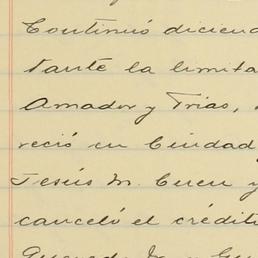 Continuó diciend
tante la limita
Amador y Trias,
reció en Ciudad
Jesús M. Ceren y
canceló el crédit